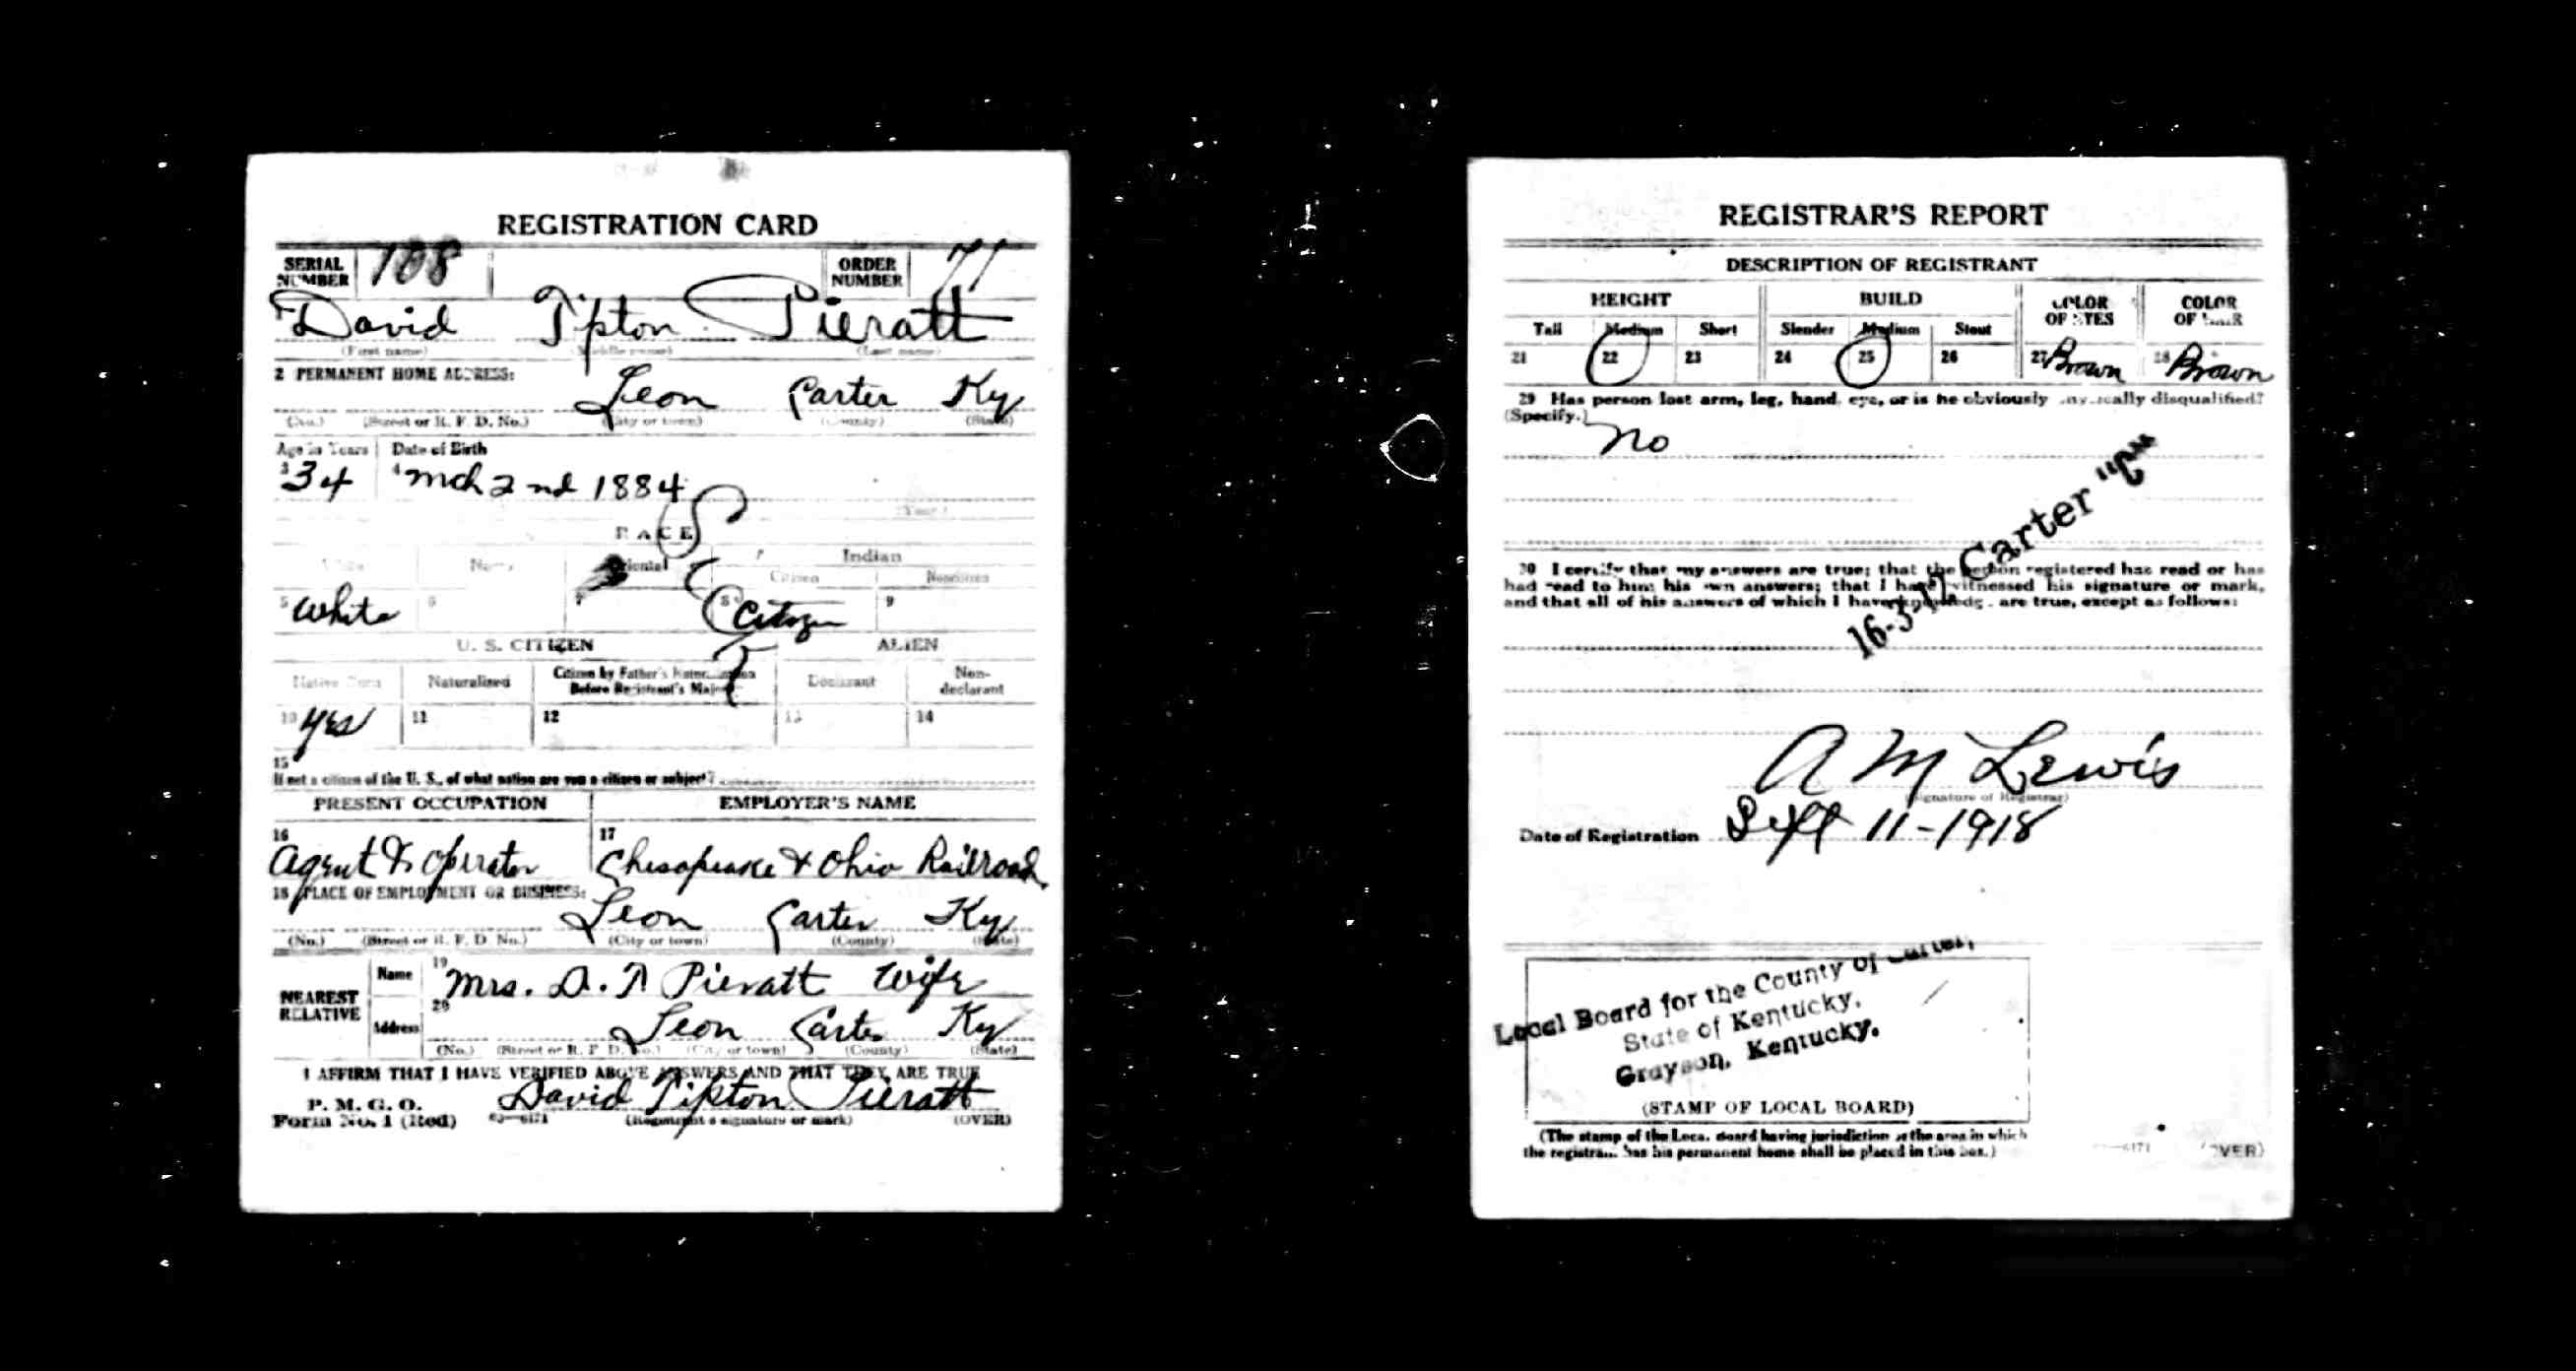 REGISTRATION CARD
SERIAL NUMBER 108 ORDER NUMBER 71
1 David Tipton Pieratt
(First name) (Middle name) (Last name)
2 PERMANENT HOME ADDRESS:
Leon Carter Ky
(No.) (Street or R. F. D. No.) (City or town) (County) (State)
Age in Years Date of Birth
3 34 4 Mch 2nd 1884
(Year)
RACE
White Oriental Indian
Citizen Noncitizen
5 White 6 7 8 Citizen 9
U. S. CITIZEN ALIEN
Native Born Naturalized Citizen by Father's Naturalization Before Registrant's Majority Declarant Non-declarant
10 Yes 11 12 13 14
15
If not a citizen of the U. S., of what nation are you a citizen or subject?
PRESENT OCCUPATION EMPLOYER'S NAME
16 Agent & Operator 17 Chesapeake & Ohio Railroad
18 PLACE OF EMPLOYMENT OR BUSINESS:
Leon Carter Ky
(No.) (Street or R. F. D. No.) (City or town) (County) (State)
NEAREST RELATIVE Name 19 Mrs. D. T Pieratt Wife
Address 20 Leon Carter Ky
(No.) (Street or R. F. D. No.) (City or town) (County) (State)
I AFFIRM THAT I HAVE VERIFIED ABOVE ANSWERS AND THAT THEY ARE TRUE
P. M. G. O.
Form No. 1 (Red) 03—6171 David Tipton Pieratt
(Registrant's signature or mark) (OVER)
REGISTRAR'S REPORT
DESCRIPTION OF REGISTRANT
HEIGHT BUILD COLOR OF EYES COLOR OF HAIR
Tall Medium Short Slender Medium Stout
21 22 23 24 25 26 27 Brown 28 Brown
29 Has person lost arm, leg, hand, eye, or is he obviously physically disqualified?
(Specify.) No
16-3-12 Carter "C"
30 I certify that my answers are true; that the person registered has read or has
had read to him his own answers; that I have witnessed his signature or mark,
and that all of his answers of which I have knowledge are true, except as follows:
A M Lewis
(Signature of Registrar)
Date of Registration Sept 11-1918
Local Board for the County of Carter,
State of Kentucky.
Grayson, Kentucky.
(STAMP OF LOCAL BOARD)
(The stamp of the Local Board having jurisdiction of the area in which
the registrant has his permanent home shall be placed in this box.)
6171 (OVER)